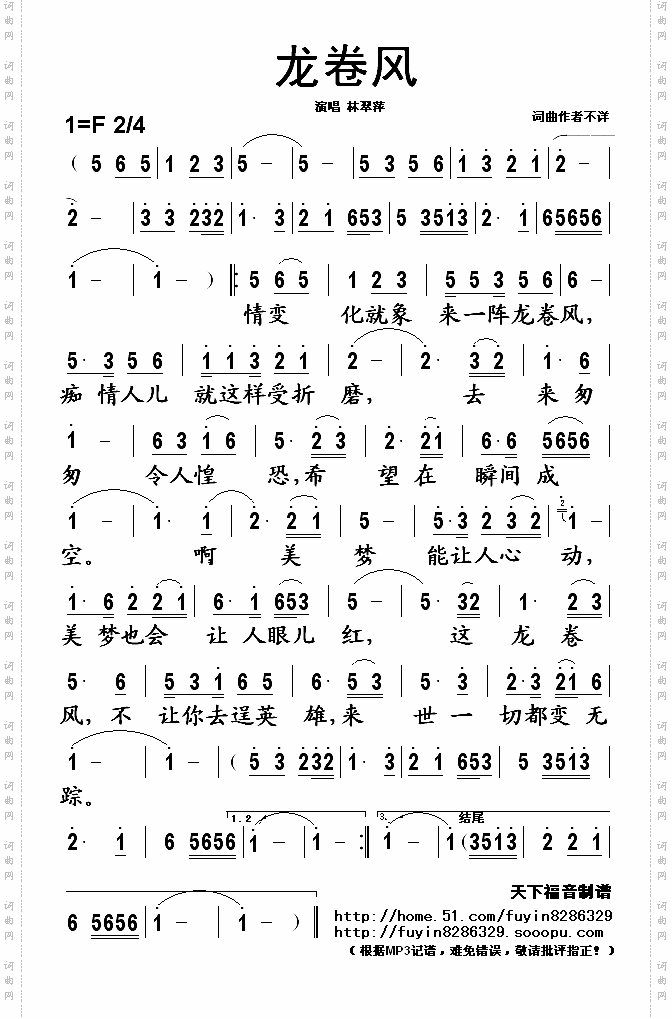 龙卷风
演唱 林翠萍
词曲作者不详
1=F 2/4
( 5 6 5 | 1 2 3 | 5 – | 5 – | 5 3 5 6 | 1 3 2 1 | 2 –
2 – | 3 3 232 | 1· 3 | 2 1 653 | 5 3513 | 2· 1 | 65656
1 – | 1 – ) ‖: 5 6 5 | 1 2 3 | 5 5 3 5 6 | 6 –
情变 化就象 来一阵龙卷风，
5· 3 5 6 | 1 1 3 2 1 | 2 – | 2· 3 2 | 1· 6
痴 情人儿 就这样受折 磨， 去 来匆
1 – | 6 3 1 6 | 5· 2 3 | 2· 21 | 6·6 5656
匆 令人惶 恐,希 望在 瞬间成
1 – | 1· 1 | 2· 2 1 | 5 – | 5·3 2 3 2 | 2 1 –
空。 啊 美 梦 能让人心 动，
1· 6 2 2 1 | 6· 1 653 | 5 – | 5· 32 | 1· 2 3
美 梦也会 让 人眼儿 红， 这 龙 卷
5· 6 | 5 3 1 6 5 | 6· 5 3 | 5· 3 | 2·3 21 6
风，不 让你去逞英 雄,来 世一 切都变无
1 – | 1 – | ( 5 3 232 | 1· 3 | 2 1 653 | 5 3513
踪。
1. 2. 3. 结尾
2· 1 | 6 5656 | 1 – | 1 – :‖ 1 – | 1 (3513 | 2 2 1
6 5656 | 1 – | 1 – ) ‖
天下福音制谱
http://home.51.com/fuyin8286329
http://fuyin8286329.sooopu.com
（根据MP3记谱，难免错误，敬请批评指正！）
词曲网